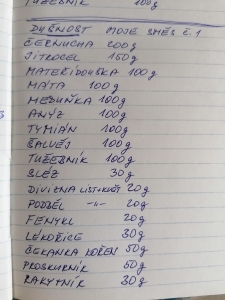 TUŽEBNÍK 100g
DUŠNOST MOJE SMĚS č.1
ČERNUCHA 200g
JITROCEL 150g
MATEŘÍDOUŠKA 100g
MÁTA 100g
MEDUŇKA 100g
ANÝZ 100g
TYMIÁN 100g
ŠALVĚJ 100g
TUŽEBNÍK 100g
SLÉZ 30g
DIVIZNA LIST+KVĚT 20g
PODBĚL -"- 20g
FENYKL 20g
LÉKOŘICE 30g
ČEKANKA KOŘEN 50g
PROSKURNÍK 50g
RAKYTNÍK 30g